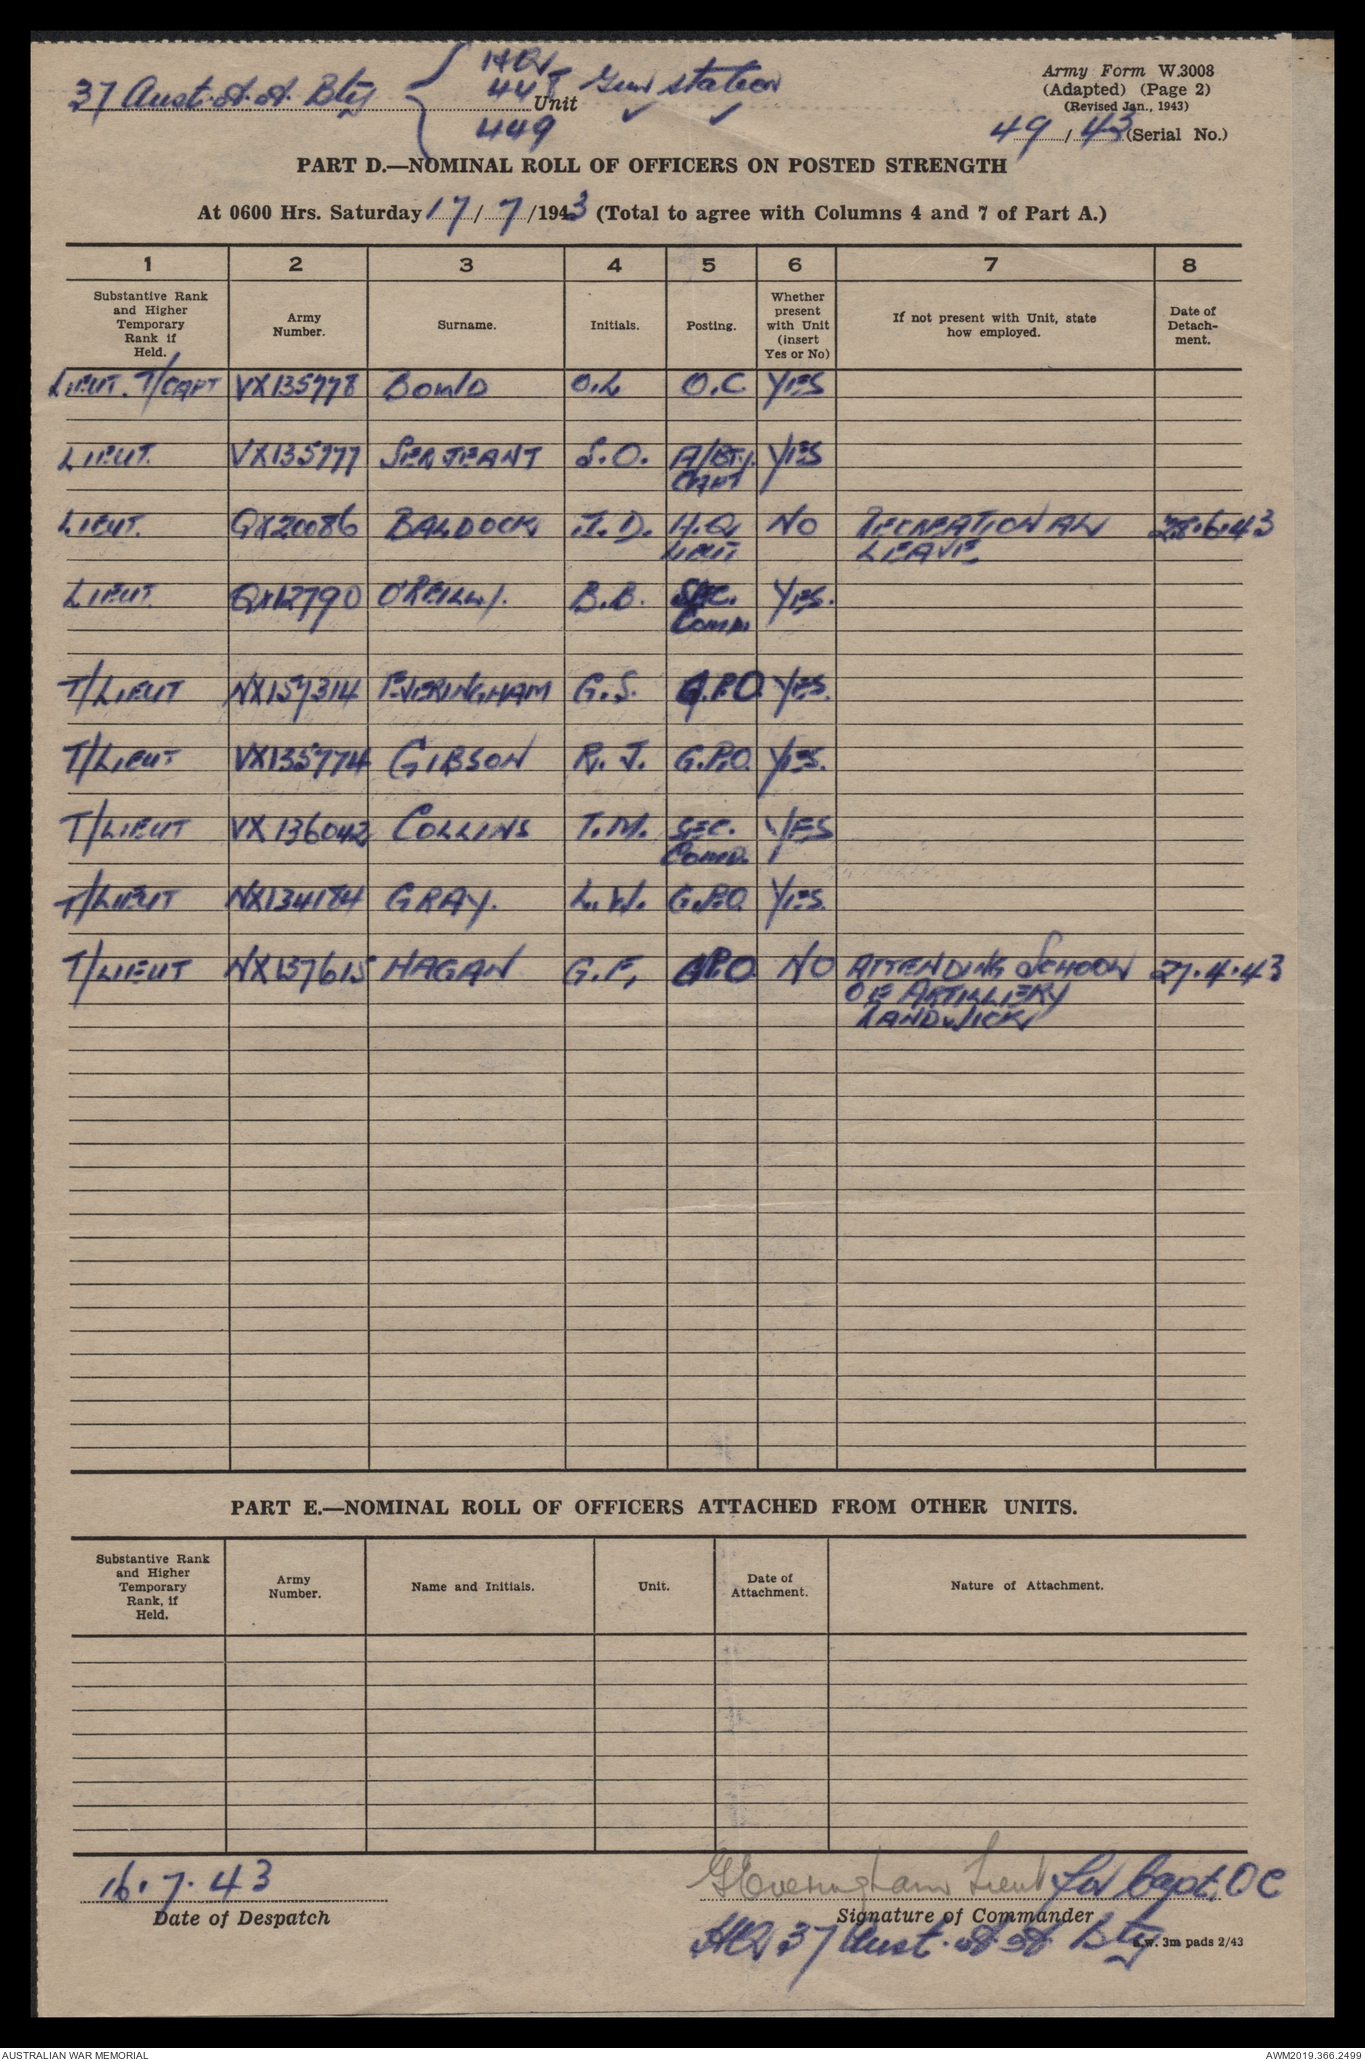 37 Aust. A. A. Bty { HQ
448 Gun Station
Unit
449
Army Form W.3008
(Adapted) (Page 2)
(Revised Jan., 1943)
49 / 43 (Serial No.)
PART D.—NOMINAL ROLL OF OFFICERS ON POSTED STRENGTH
At 0600 Hrs. Saturday 17 / 7 /1943 (Total to agree with Columns 4 and 7 of Part A.)
1 2 3 4 5 6 7 8
Substantive Rank and Higher Temporary Rank if Held. Army Number. Surname. Initials. Posting. Whether present with Unit (insert Yes or No) If not present with Unit, state how employed. Date of Detach-ment.
LIEUT. T/CAPT VX135778 BOWLD O.L O.C YES
LIEUT. VX135777 SERJEANT S.O. A/BTY. YES
CAPT
LIEUT. QX20086 BALDOCK J.D. H.Q. NO RECREATIONAL 28.6.43
LIEUT LEAVE
LIEUT. QX12790 O'REILLY. B.B. SEC. YES.
COMD.
T/LIEUT NX157314 EVERINGHAM G.S. G.P.O YES.
T/LIEUT VX135774 GIBSON R.J. G.P.O. YES.
T/LIEUT VX136042 COLLINS T.M. SEC. YES
COMD.
T/LIEUT NX134184 GRAY. L.W. G.P.O. YES.
T/LIEUT NX137615 HAGAN G.F. GPO NO ATTENDING SCHOOL 27.4.43
OF ARTILLERY
RANDWICK
PART E.—NOMINAL ROLL OF OFFICERS ATTACHED FROM OTHER UNITS.
Substantive Rank and Higher Temporary Rank, if Held. Army Number. Name and Initials. Unit. Date of Attachment. Nature of Attachment.
16.7.43
Date of Despatch
GEveringham Lieut for Capt. OC
Signature of Commander
HQ 37 Aust. A A Bty
w. 3m pads 2/43
AUSTRALIAN WAR MEMORIAL
AWM2019.366.2499